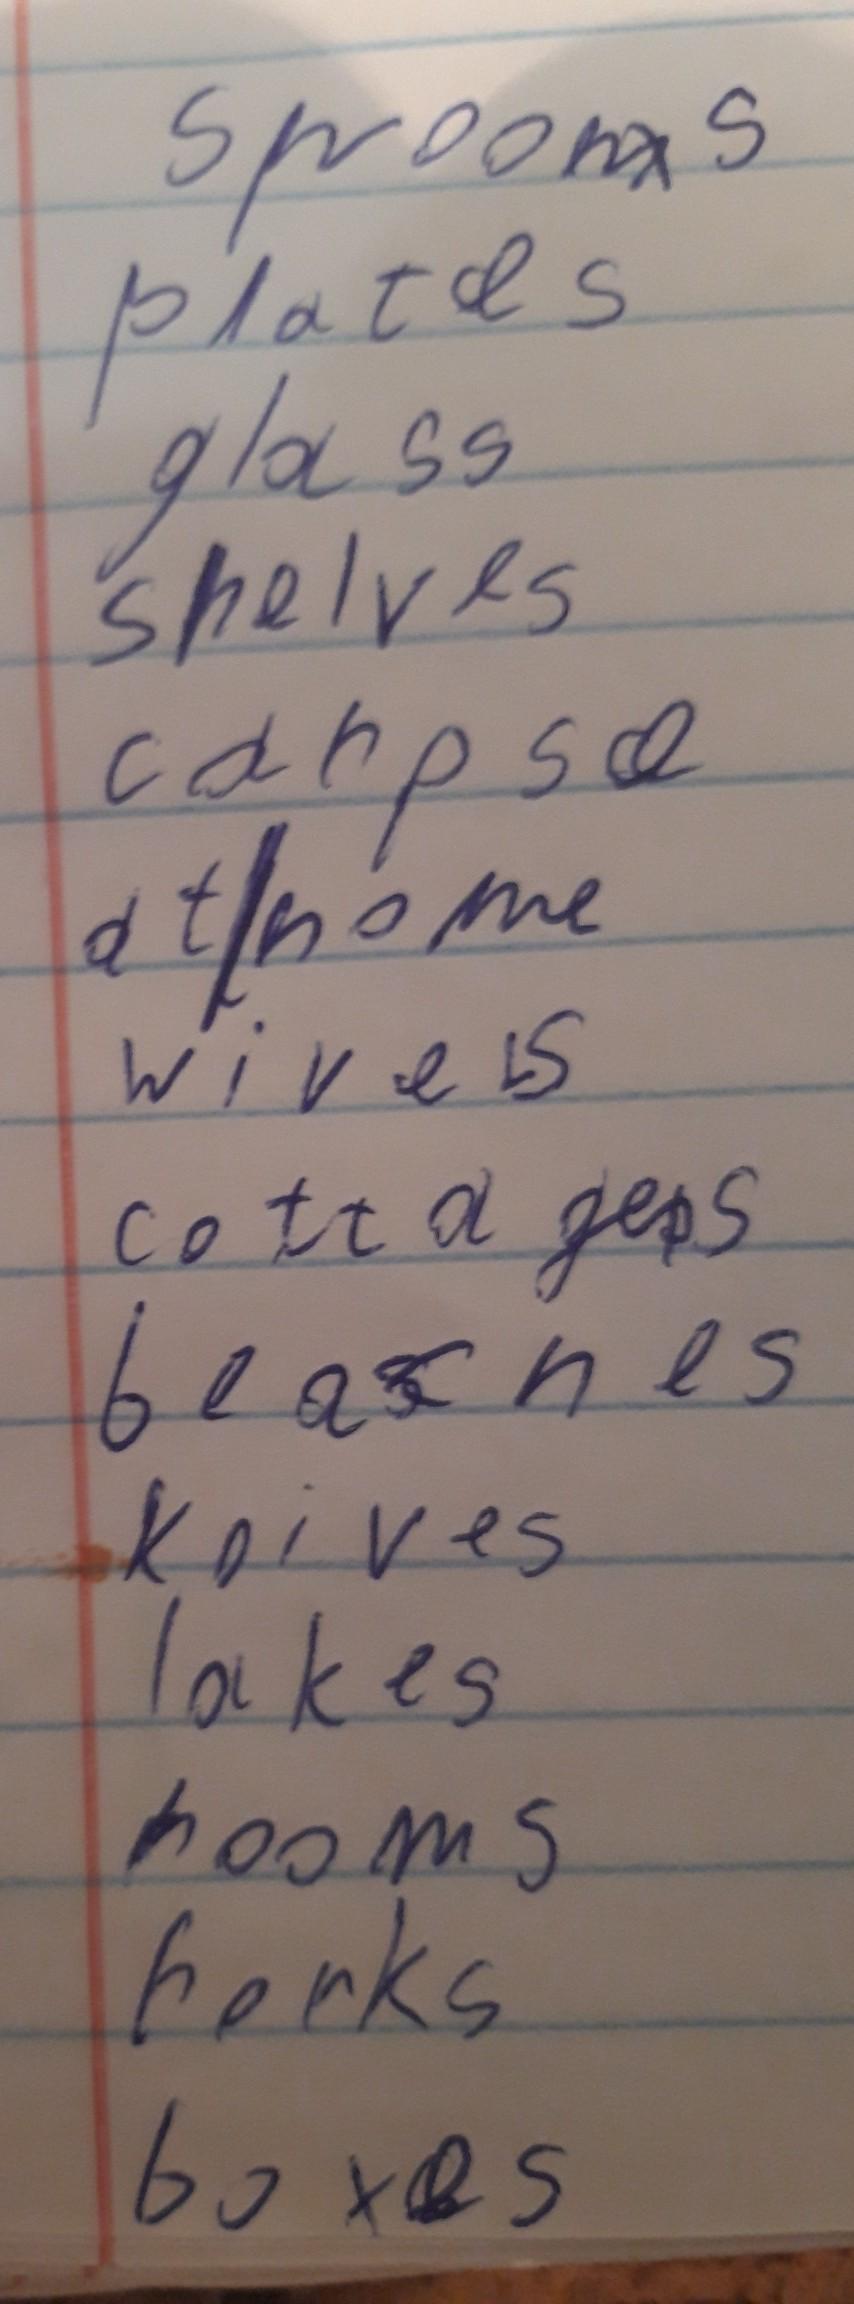 sprooms
plates
glass
shelves
carpse
at/home
wives
cottages
beaches
knives
lakes
rooms
forks
boxes